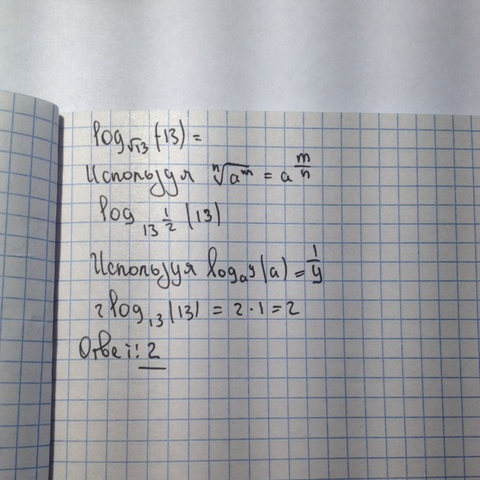 log√13 (13) =
Используя ⁿ√aᵐ = a^(m/n)
log 13^(1/2) (13)
Используя log a^y (a) = 1/y
2 log₁₃ (13) = 2 · 1 = 2
Ответ: 2